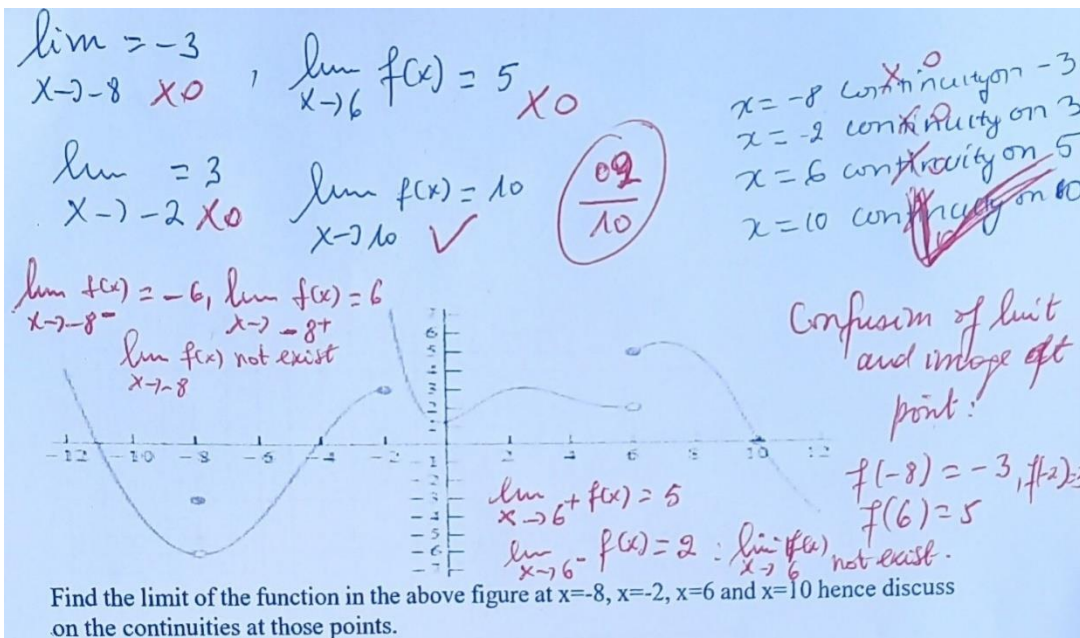 lim = -3
x→-8 X0
, lim f(x) = 5
x→6 X0
lim = 3
x→-2 X0
lim f(x) = 10
x→10 ✓
02
10
x = -8 continuity on -3
X 0
x = -2 continuity on 3
x = 6 continuity on 5
x = 10 continuity on 10
lim f(x) = -6, lim f(x) = 6
x→-8⁻ x→-8+
lim f(x) not exist
x→-8
Confusion of limit
and image of
point!
f(-8) = -3, f(-2)=3
f(6) = 5
lim f(x) = 5
x→6+
lim f(x) = 2 : lim f(x) not exist.
x→6⁻ x→6
-12 -10 -8 -6 -4 -2 2 4 6 8 10 12
Find the limit of the function in the above figure at x=-8, x=-2, x=6 and x=10 hence discuss
on the continuities at those points.